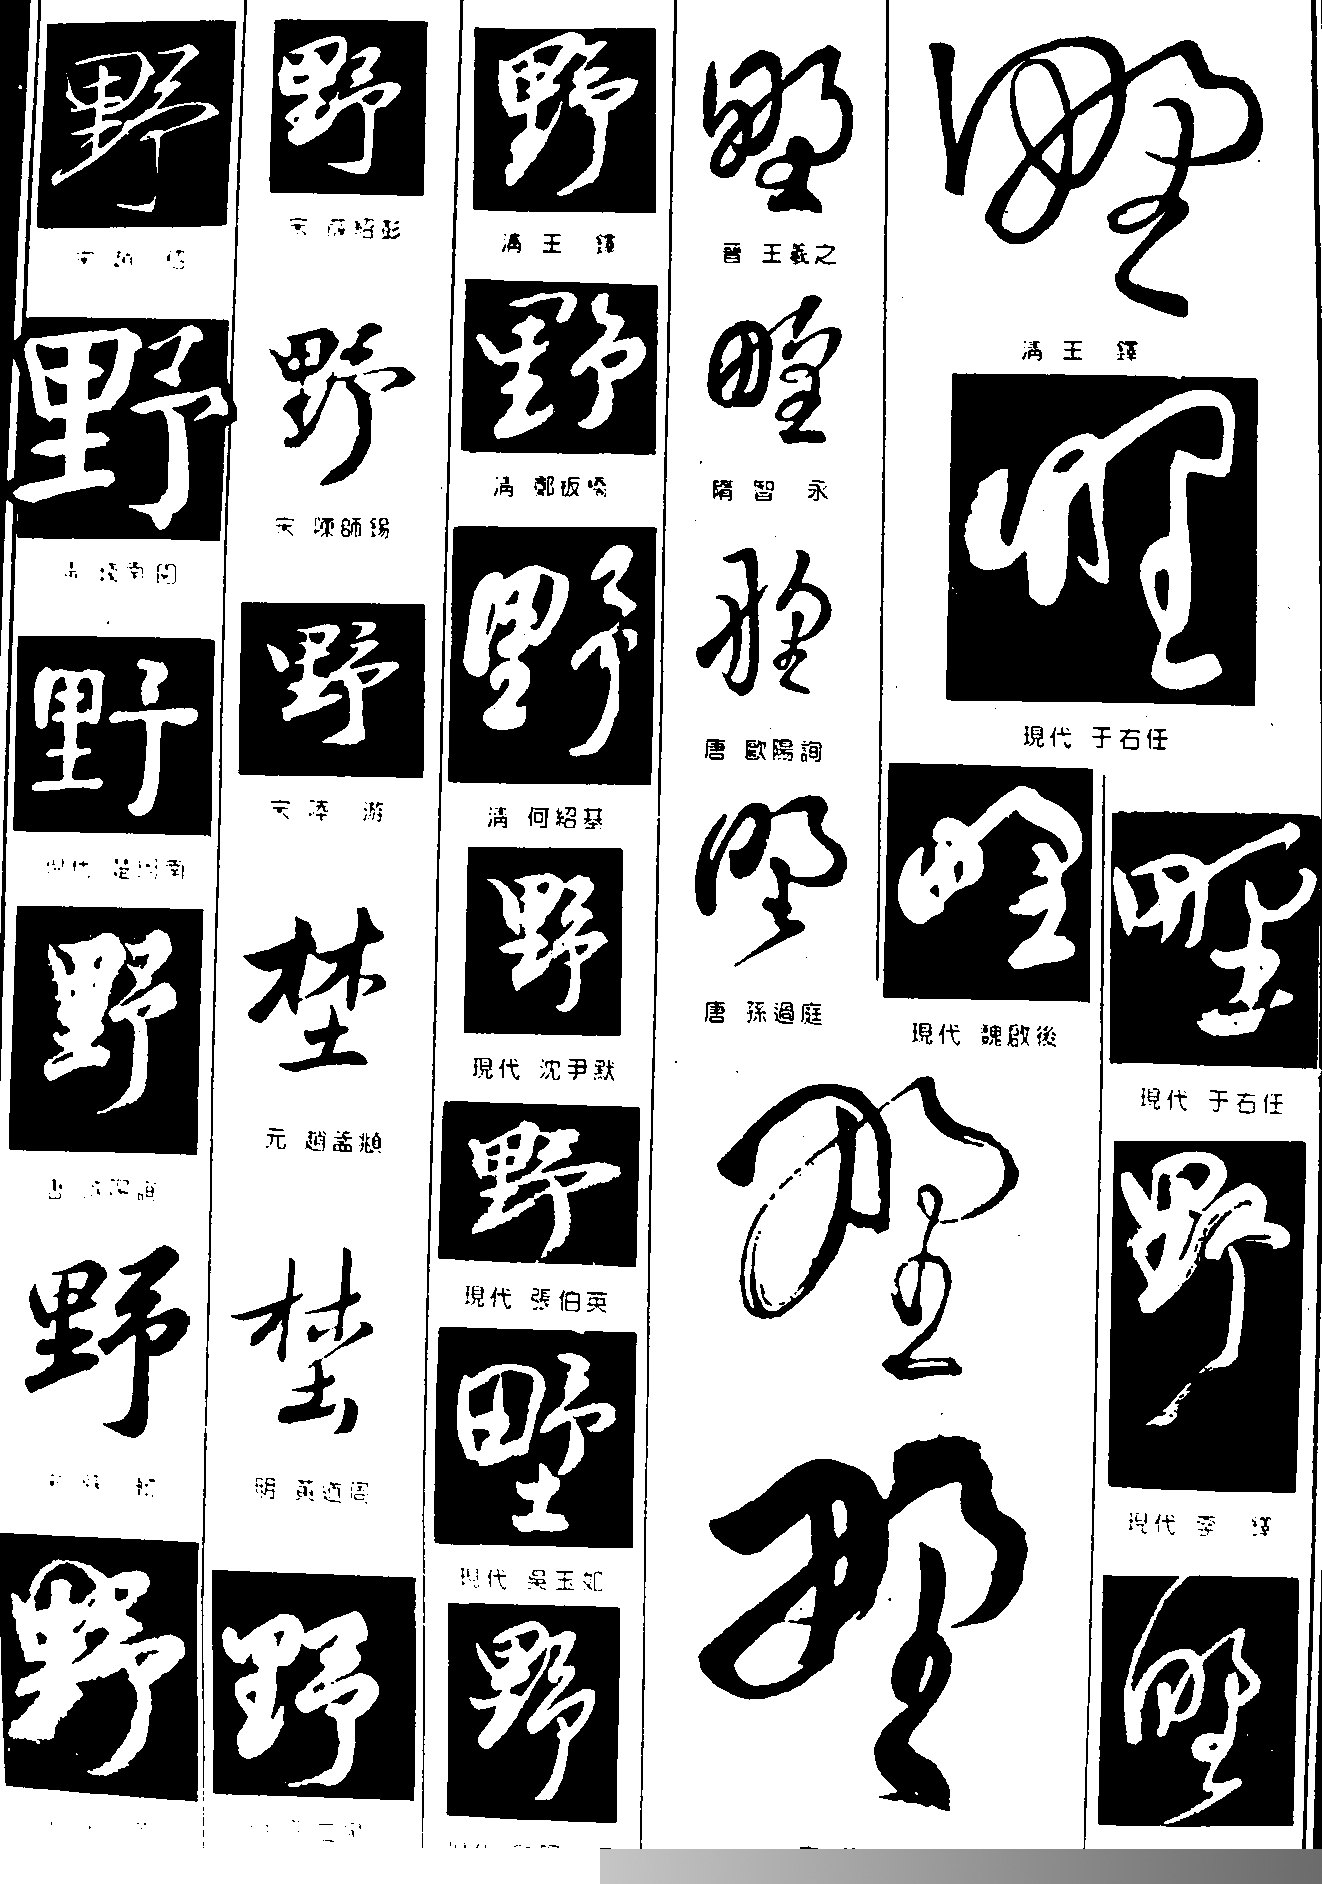 野
宋 趙 佶
野
野
現代 楚圖南
野
野
野
野
宋 薛紹彭
野
宋 陳師錫
野
宋 陸 游
埜
元 趙孟頫
埜
明 黃道周
野
野
清 王 鐸
野
清 鄭板橋
野
清 何紹基
野
現代 沈尹默
野
現代 張伯英
野
現代 吳玉如
野
野
晉 王羲之
野
隋 智 永
野
唐 歐陽詢
野
唐 孫過庭
野
野
野
清 王 鐸
野
現代 于右任
野
現代 魏啟後
野
現代 于右任
野
野